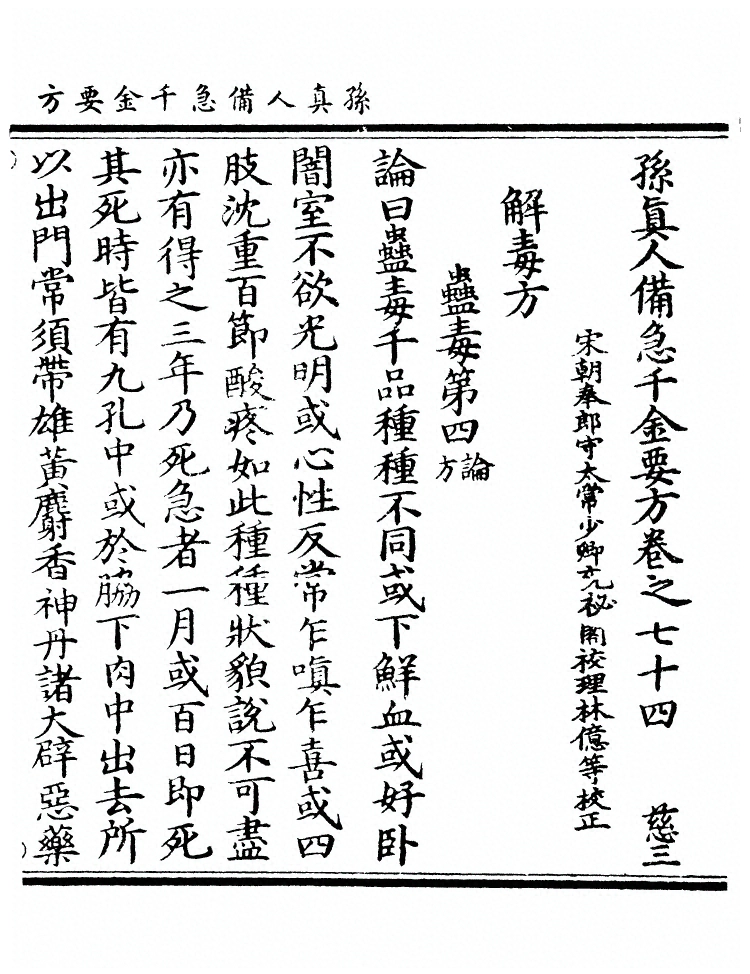 孫真人備急千金要方
孫真人備急千金要方卷之七十四 慈三
宋朝奉郎守太常少卿充祕閣校理林億等校正
解毒方
蠱毒第四論方
論曰蠱毒千品種種不同或下鮮血或好卧
闇室不欲光明或心性反常乍嗔乍喜或四
肢沈重百節酸疼如此種種狀貌說不可盡
亦有得之三年乃死急者一月或百日即死
其死時皆有九孔中或於脇下肉中出去所
以出門常須帶雄黃麝香神丹諸大辟惡藥